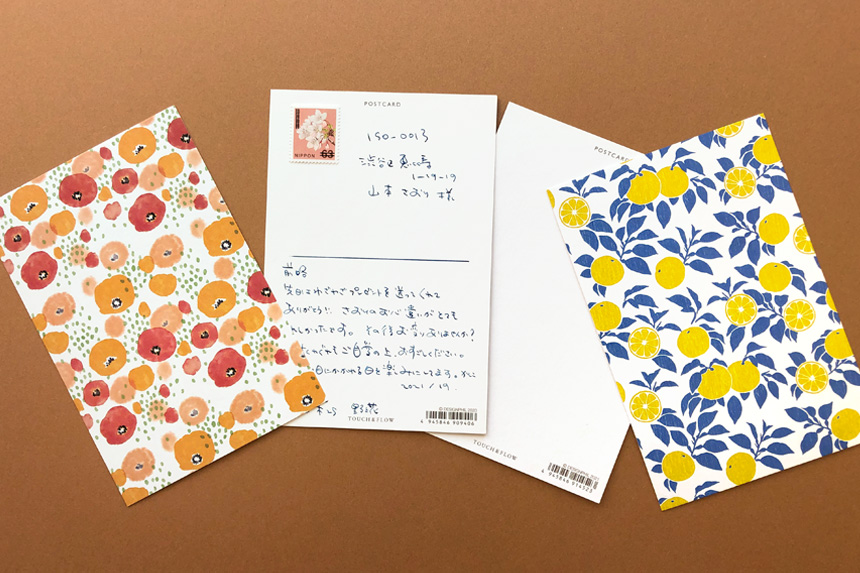 POSTCARD
NIPPON 63
150-0013
渋谷区恵比寿
1-19-19
山本 さおり 様
前略
先日はわざわざプレゼントを送ってくれて
ありがとう!! さおりのお心遣いがとても
しかったです。 その後お変りありませんか?
くれぐれもご自愛の上、お過ごしください。
日にかかれる日を楽しみにしてます。かしこ
2021/19
© DESIGNPHIL 2021
TOUCH&FLOW
4 945846 909406
POSTCARD
TOUCH&FLOW
© DESIGNPHIL 2021
4 945846 914523